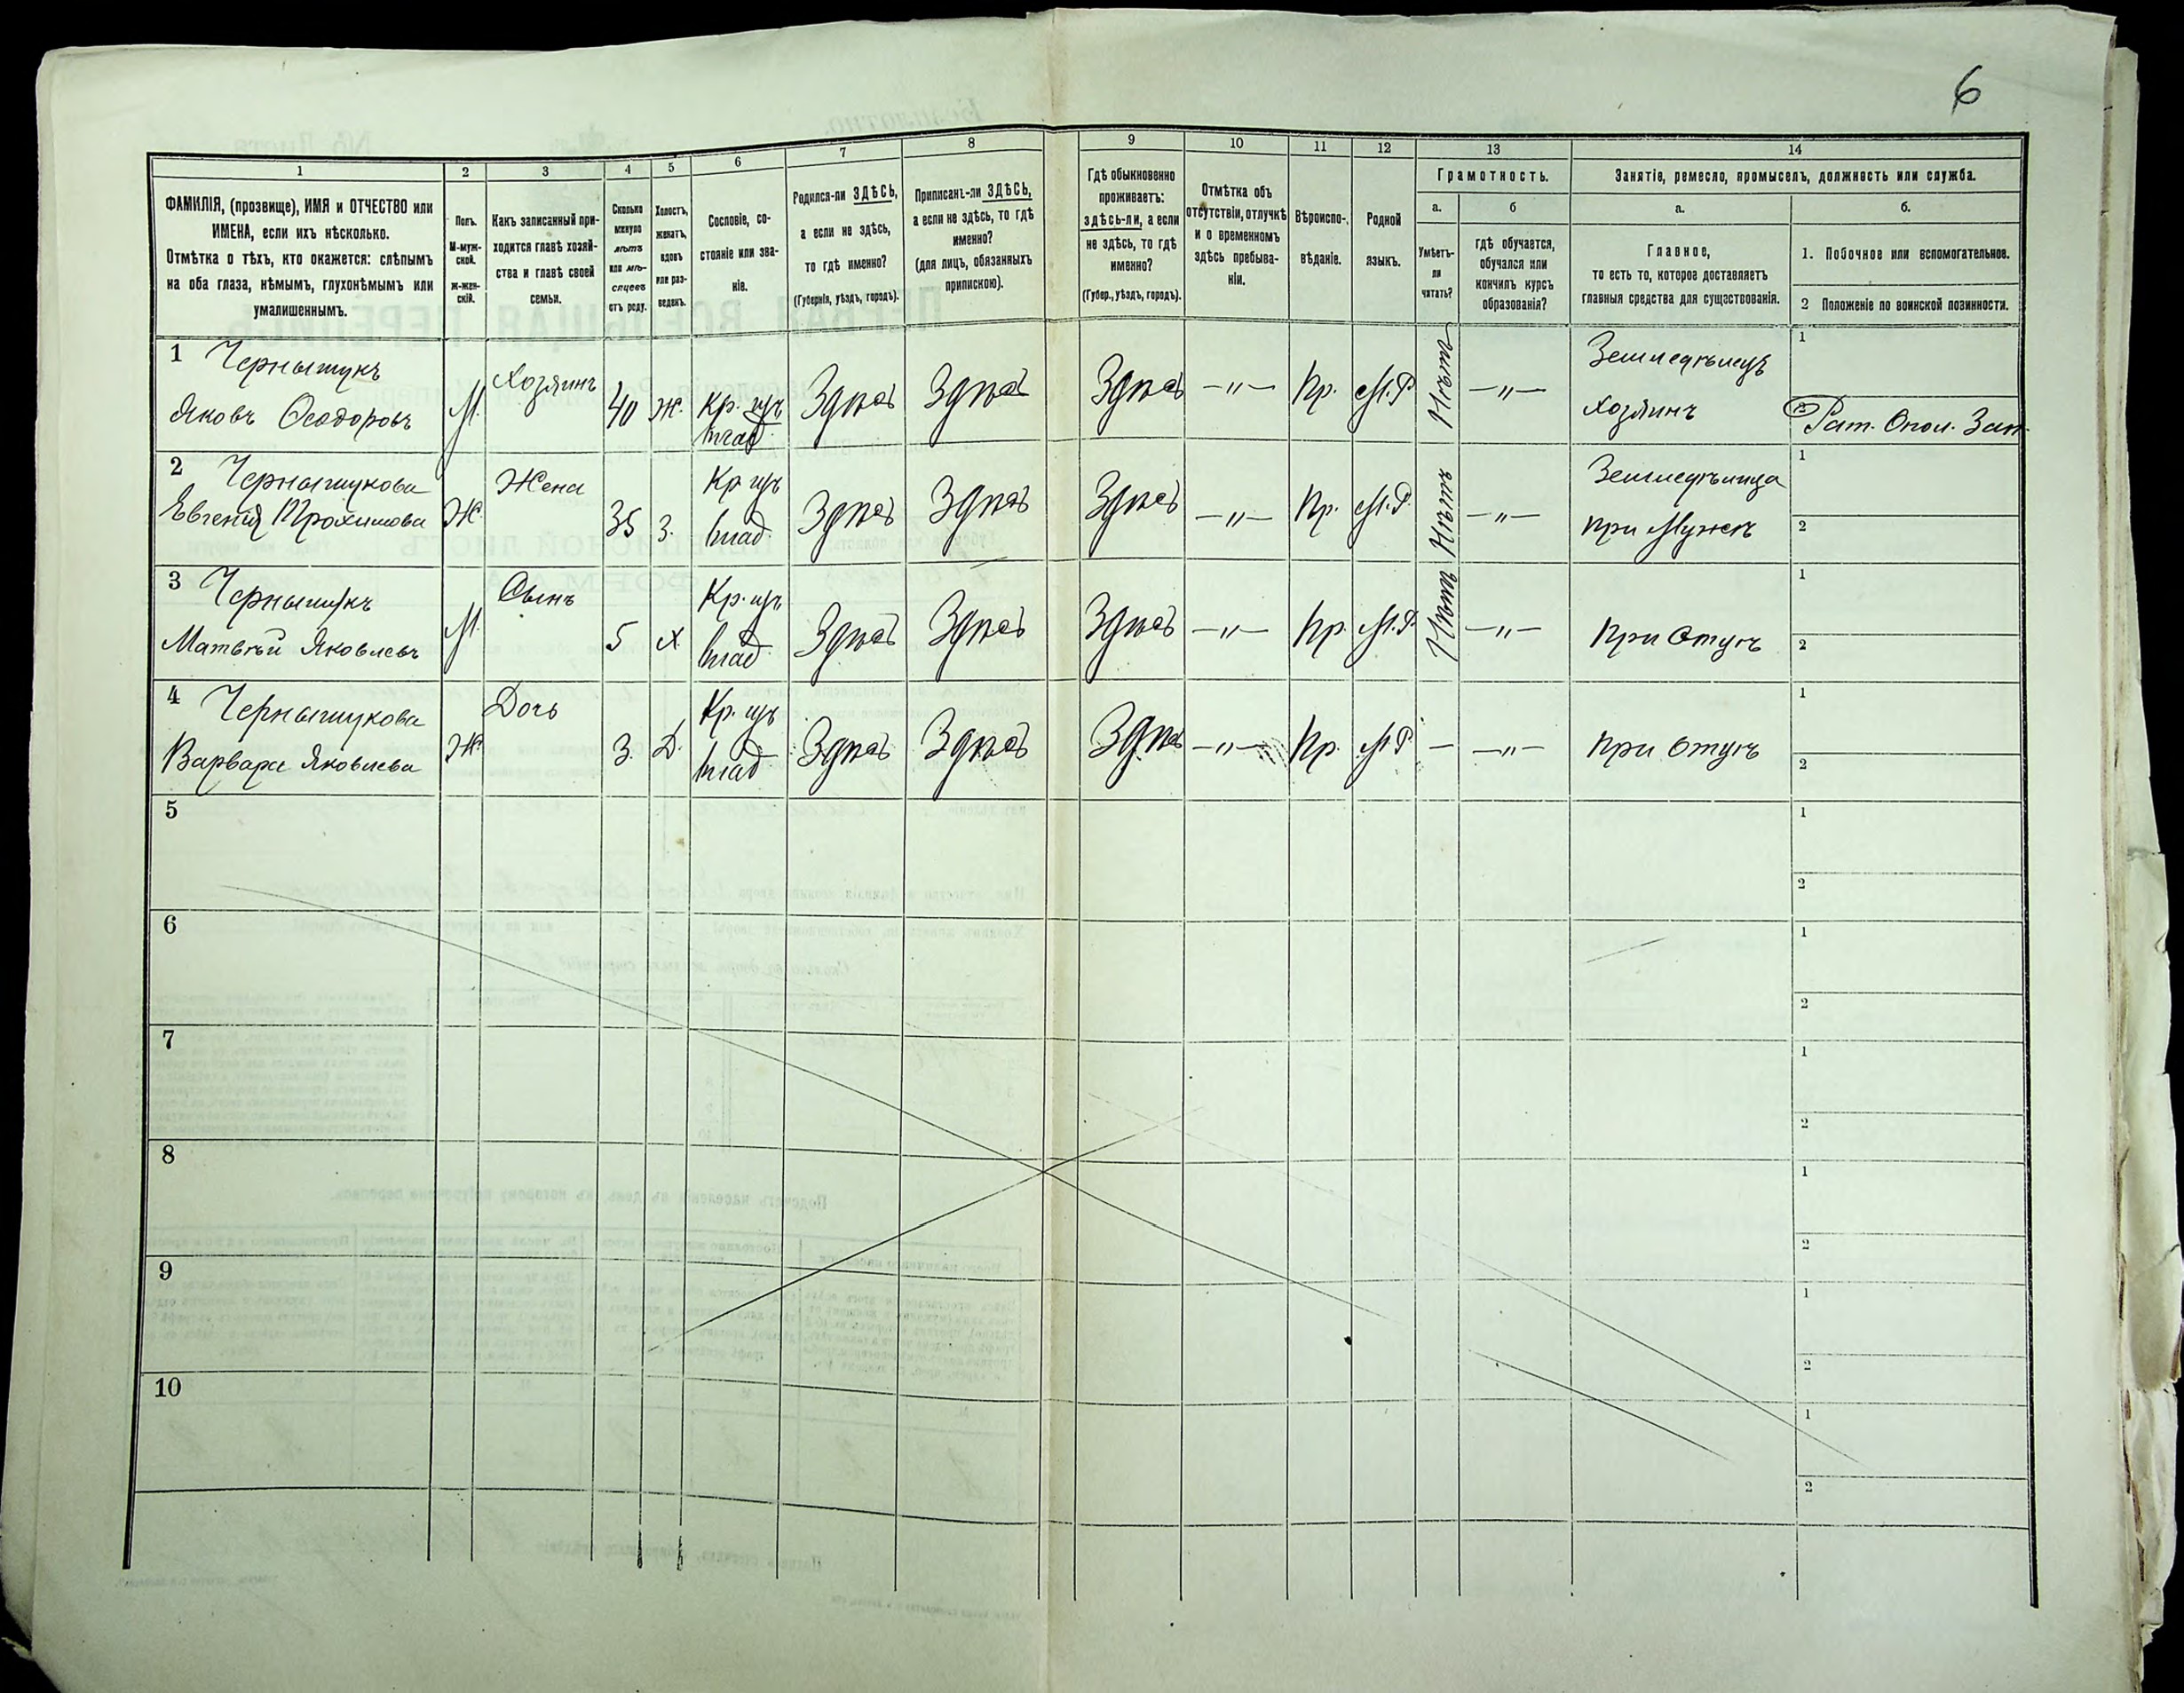 6
1
2
3
4
5
6
7
8
9
10
11
12
13
14
ФАМИЛІЯ, (прозвище), ИМЯ и ОТЧЕСТВО или
ИМЕНА, если ихъ нѣсколько.
Отмѣтка о тѣхъ, кто окажется: слѣпымъ
на оба глаза, нѣмымъ, глухонѣмымъ или
умалишеннымъ.
Полъ.
М-муж-
ской.
Ж-жен-
скій.
Какъ записанный при-
ходится главѣ хозяй-
ства и главѣ своей
семьи.
Сколько
минуло
лѣтъ
или мѣ-
сяцевъ
отъ роду.
Холостъ,
женатъ,
вдовъ
или раз-
веденъ.
Сословіе, со-
стояніе или зва-
ніе.
Родился-ли ЗДѢСЬ,
а если не здѣсь,
то гдѣ именно?
(Губернія, уѣздъ, городъ).
Приписанъ-ли ЗДѢСЬ,
а если не здѣсь, то гдѣ
именно?
(для лицъ, обязанныхъ
припискою).
Гдѣ обыкновенно
проживаетъ:
здѣсь-ли, а если
не здѣсь, то гдѣ
именно?
(Губер., уѣздъ, городъ).
Отмѣтка объ
отсутствіи, отлучкѣ
и о временномъ
здѣсь пребыва-
ніи.
Вѣроиспо-
вѣданіе.
Родной
языкъ.
Грамотность.
а.
Умѣетъ-
ли
читать?
б
гдѣ обучается,
обучался или
кончилъ курсъ
образованія?
Занятіе, ремесло, промыселъ, должность или служба.
а.
Главное,
то есть то, которое доставляетъ
главныя средства для существованія.
б.
1. Побочное или вспомогательное.
2 Положеніе по воинской повинности.
1 Чернышукъ
Яковъ Ѳеодоровъ
М.
Хозяинъ
40
Ж.
Кр. изъ
влад.
Здѣсь
Здѣсь
Здѣсь
—"—
Пр.
М.Р.
Нѣтъ
—"—
Земледѣлецъ
Хозяинъ
1
2 Рат. Опол. Зап.
2 Чернышукова
Евгенія Прохимова
Ж.
Жена
35
З.
Кр изъ
влад.
Здѣсь
Здѣсь
Здѣсь
—"—
Пр.
М.Р.
Нѣтъ
—"—
Земледѣлица
при Мужѣ
1
2
3 Чернышукъ
Матвѣй Яковлевъ
М.
Сынъ
5
Х.
Кр. изъ
влад.
Здѣсь
Здѣсь
Здѣсь
—"—
Пр.
М.Р.
Нѣтъ
—"—
При Отцѣ
1
2
4 Чернышукова
Варвара Яковлева
Ж.
Дочь
3.
Д.
Кр. изъ
влад.
Здѣсь
Здѣсь
Здѣсь
—"—
Пр.
М.Р.
—
—"—
При Отцѣ
1
2
5
1
2
6
1
2
7
1
2
8
1
2
9
1
2
10
1
2